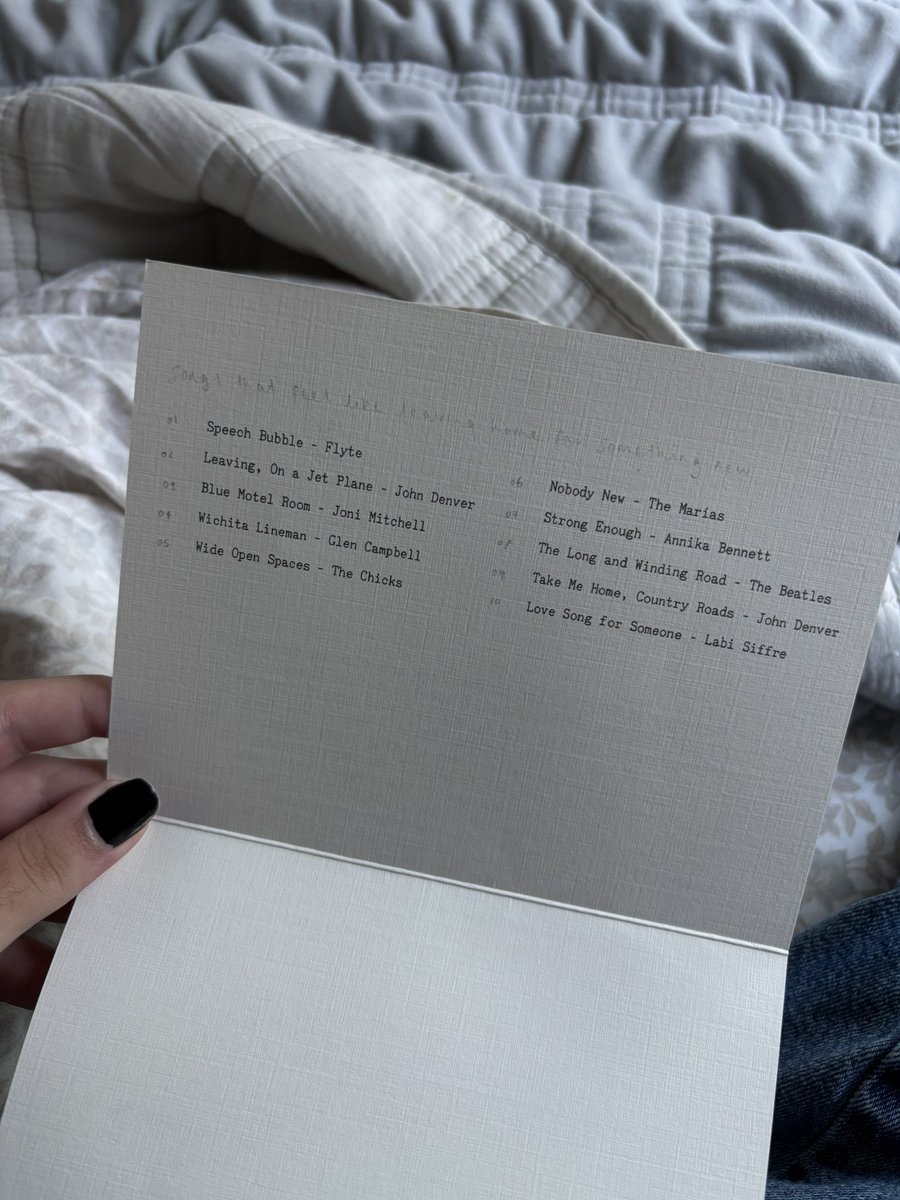 songs that feel like leaving home for something
01 Speech Bubble - Flyte
02 Leaving, On a Jet Plane - John Denver
03 Blue Motel Room - Joni Mitchell
04 Wichita Lineman - Glen Campbell
05 Wide Open Spaces - The Chicks
06 Nobody New - The Marías
07 Strong Enough - Annika Bennett
08 The Long and Winding Road - The Beatles
09 Take Me Home, Country Roads - John Denver
10 Love Song for Someone - Labi Siffre